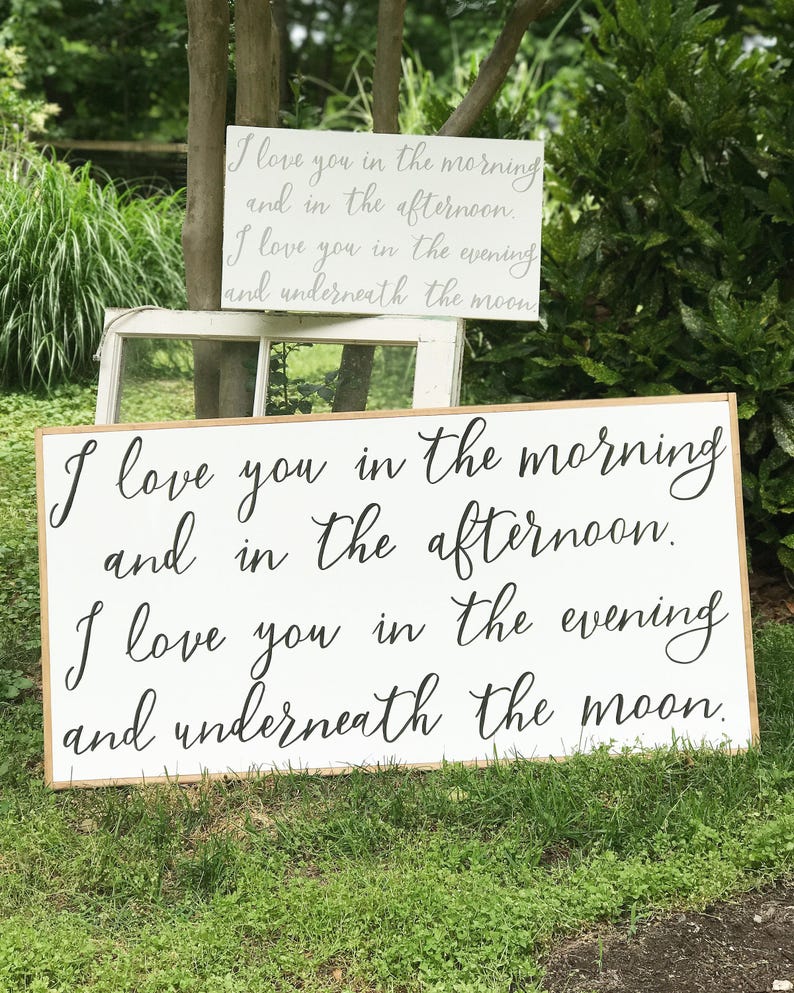 I love you in the morning
and in the afternoon.
I love you in the evening
and underneath the moon.
I love you in the morning
and in the afternoon.
I love you in the evening
and underneath the moon.